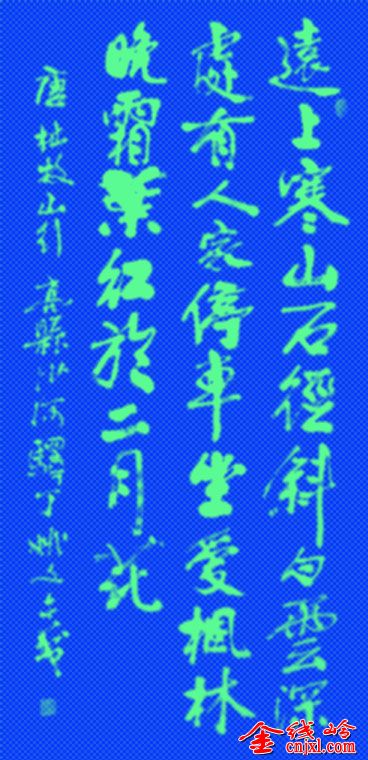 遠上寒山石徑斜白雲深
處有人家停車坐愛楓林
晚霜葉紅於二月花
唐杜牧山行
金线岭
cnjxl.com